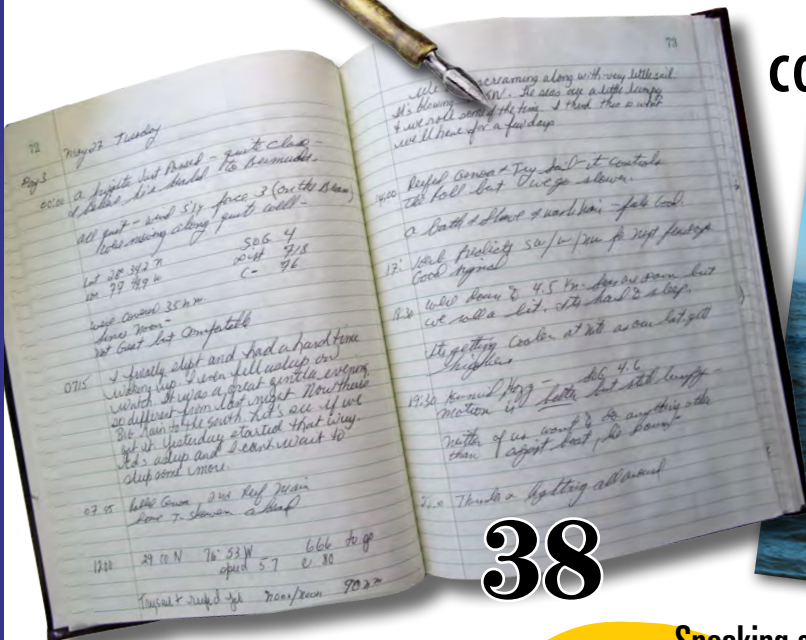 72
May 27 Tuesday
Day 3
00:00 a frigate Just Passed - quite close -
I believe he's headed to Bermuda.
All quiet - wind Sly force 3 (on the Beam)
were moving along quite well -
Lat 28° 34.2 N SOG 4
Lon 77 W Dist 718
C- 76
weve covered 35 n.m.
since noon -
not Great but Comfortable
0715 I finally slept and had a hard time
waking up. I even fell asleep on
watch. It was a great gentle evening
so different from last night. Now theres
Big Rain to the south. Let's see if we
get it. Yesterday started that way.
Ed's asleep and I cant wait to
sleep some more.
07 45 Genoa, 2nd Reef Main
have T-Storm ahead
1200 29 00 N 76° 53 W 666 to go
speed 5.7 c. 80
Trysail + reefed Jib noon/noon 90 nm
73
We screaming along with very little sail
It's blowing The seas are a little lumpy
& we roll some of the time. I think this is what
we'll have for a few days
14:00 Reefed Genoa + Try Sail - it controls
the Roll but we go slower.
a bath + shave + wash hair - feels Good.
17: Predicts SW/W/NW for next few days
Good signal
were down to 4.5 kn. Seas are down but
we roll a bit. Its hard to sleep.
Its getting cooler at nite as our lat gets
higher
19:30 SOG 4.6
motion is better but still lumpy -
neither of us want to be anything other
than against boat,
Thunder + lightning all around
CO
38
Speaking